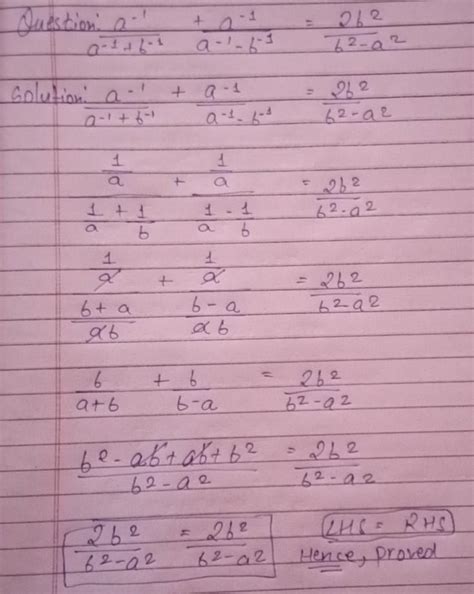 Question: a⁻¹/(a⁻¹+b⁻¹) + a⁻¹/(a⁻¹-b⁻¹) = 2b²/(b²-a²)
Solution: a⁻¹/(a⁻¹+b⁻¹) + a⁻¹/(a⁻¹-b⁻¹) = 2b²/(b²-a²)
(1/a)/(1/a + 1/b) + (1/a)/(1/a - 1/b) = 2b²/(b²-a²)
(1/a)/((b+a)/ab) + (1/a)/((b-a)/ab) = 2b²/(b²-a²)
b/(a+b) + b/(b-a) = 2b²/(b²-a²)
(b²-ab+ab+b²)/(b²-a²) = 2b²/(b²-a²)
2b²/(b²-a²) = 2b²/(b²-a²) LHS = RHS
Hence, proved